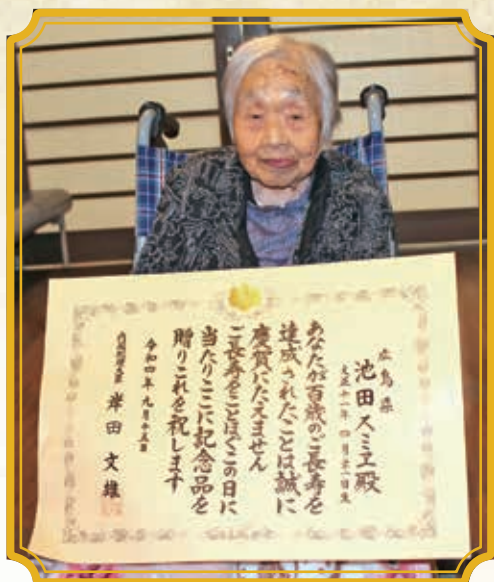 広島県
池田スミヱ殿
大正十一年 四月 一日生
あなたが百歳のご長寿を
達成されたことは誠に
慶賀にたえません
ご長寿をことほぐこの日に
当たりここに記念品を
贈りこれを祝します
令和四年九月十五日
内閣総理大臣 岸田文雄